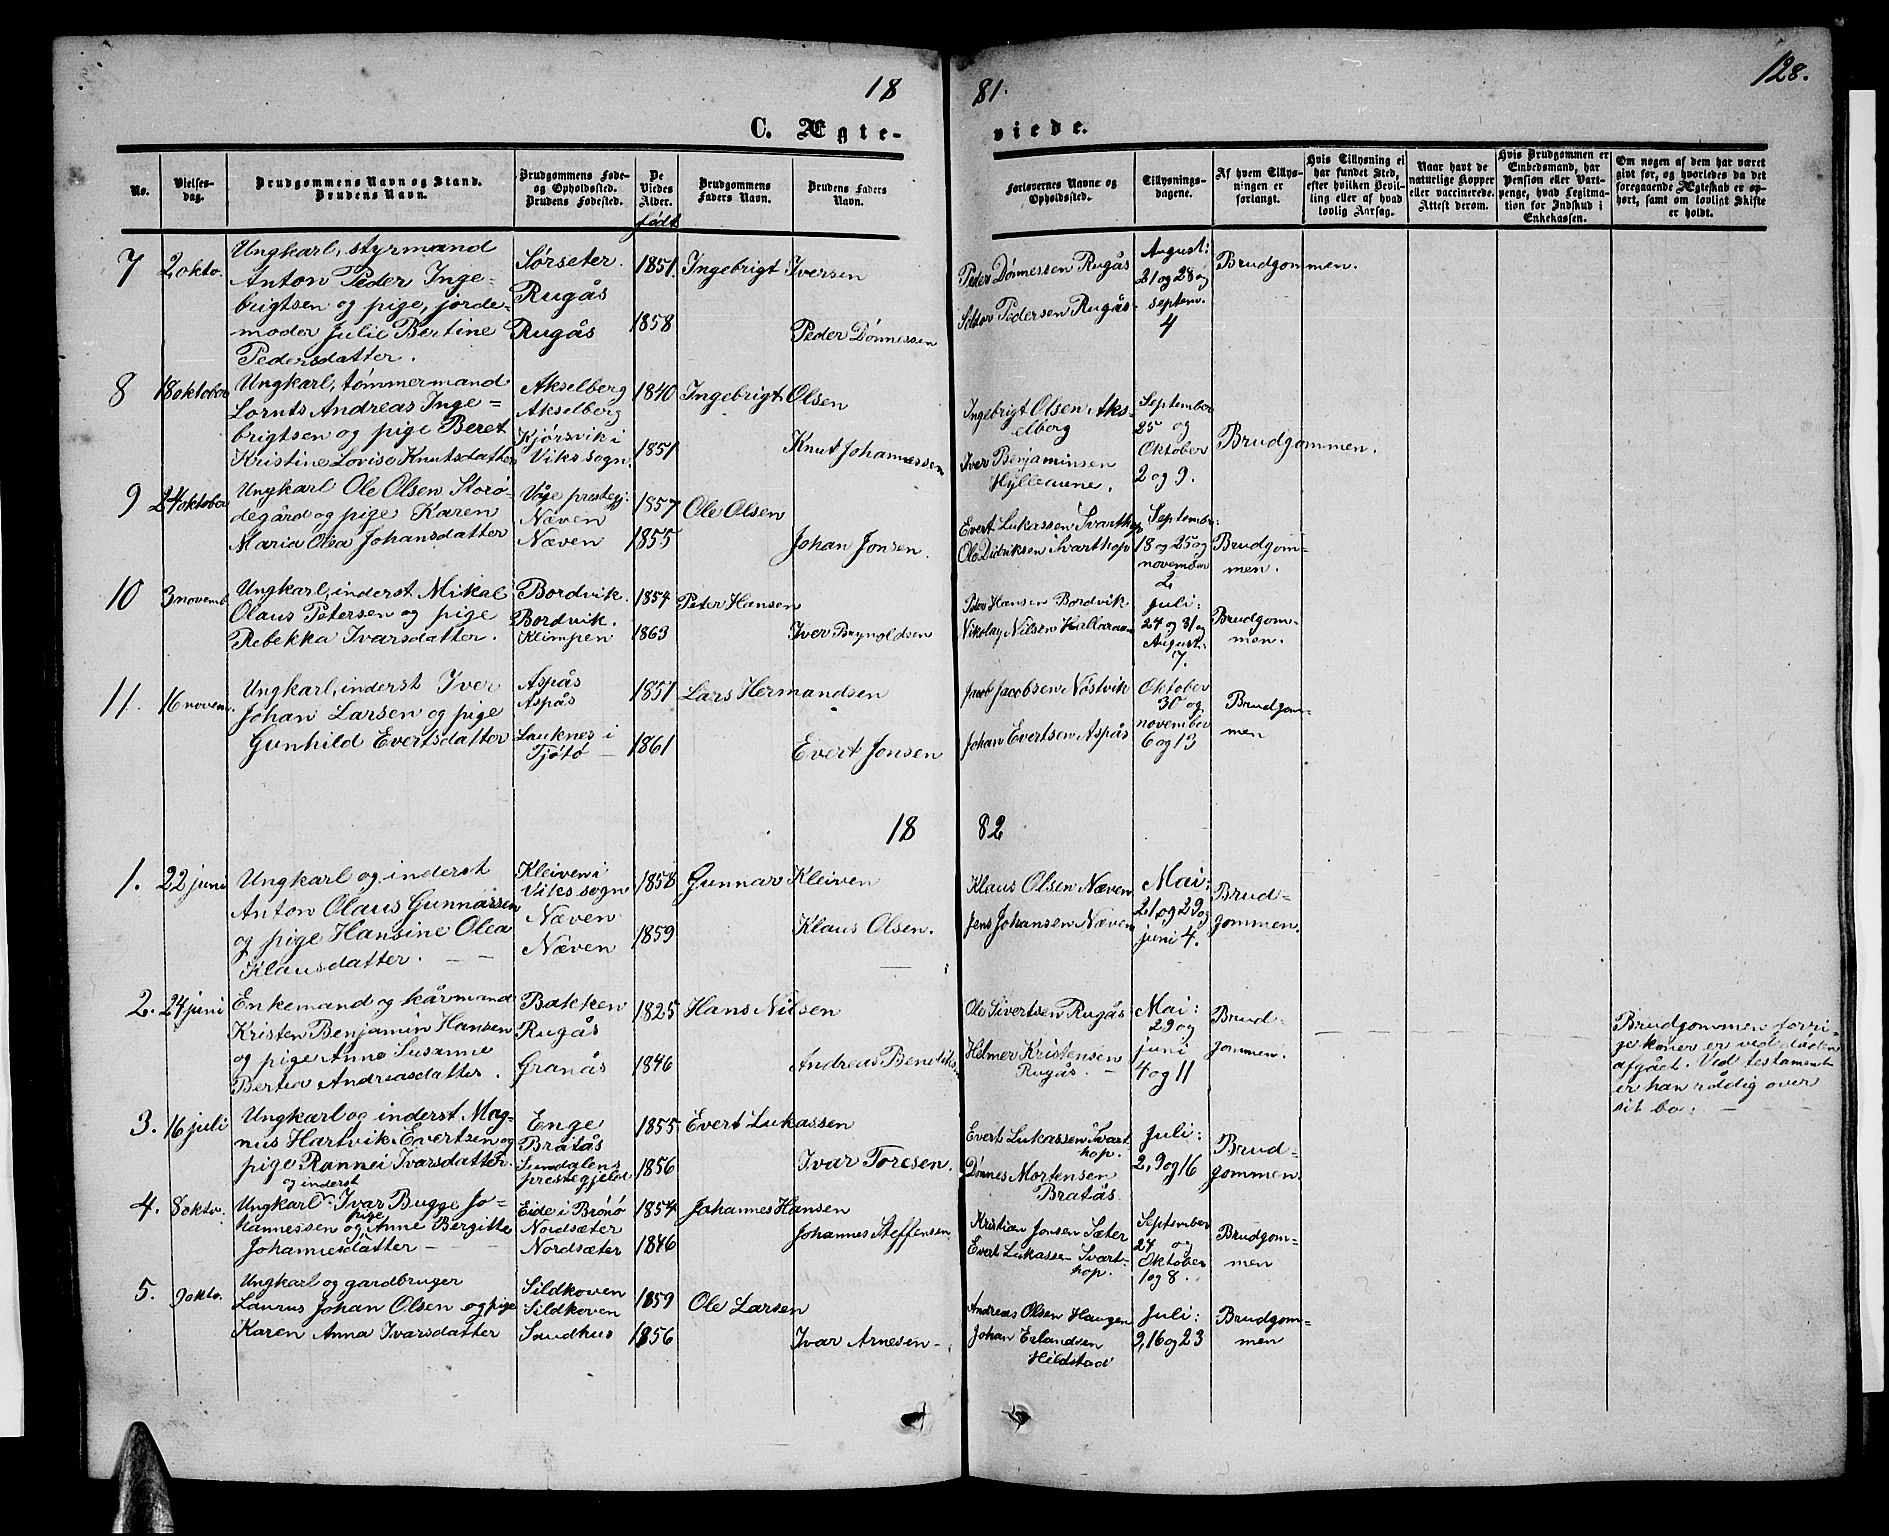 18 81. 128.
C. Ægteviede.
No.
Vielsesdag.
Brudgommens Navn og Stand.
Brudens Navn.
Brudgommens Føde-
og Opholdssted.
Brudens Fødested.
De
Viedes
Alder.
født
Brudgommens
Faders Navn.
Brudens Faders
Navn.
Forlovernes Navne og
Opholdssted.
Tillysnings-
dagene.
Af hvem Tillys-
ningen er
forlangt.
Hvis Tillysning ei
har fundet Sted,
efter hvilken Bevil-
ling eller af hvad
lovlig Aarsag.
Naar havt de
naturlige Kopper
eller vaccinerede.
Attest derom.
Hvis Brudgommen er
Embedsmand, har
Pension eller Vart-
penge, hvad Legitima-
tion for Indskud i
Enkekassen.
Om nogen af dem har været
gift før, og hvorledes da det
foregaaende Ægteskab er op-
hørt, samt om lovligt Skifte
er holdt.
7 2 okto.
Ungkarl, styrmand
Anton Peder Inge-
brigtsen og pige, jorde-
moder Julie Bertine
Pedersdatter.
Sørseter.
Rugås
Rugås
1851.
1858
Ingebrigt Iversen
Peder Dønnessen
Peder Dønnessen Rugås
Pedersen Rugås
August:
21 og 28 og
septem.
4
Brudgommen.
8 18 oktober
Ungkarl, tømmermand
Lornts Andreas Inge-
brigtsen og pige Beret
Kristine Lovise Knutsdatter
Akselberg
Akselberg
Kjørsvik i
Viks sogn.
1840
1851
Ingebrigt Olsen
Knut Johannessen
Ingebrigt Olsen Aks-
elberg
Iver Benjaminsen
Hylleaune.
September
25 og
Oktober
2 og 9.
Brudgommen.
9 24 oktober
Ungkarl Ole Olsen Storø-
degård og pige Karen
Maria Olea Johansdatter
Våge prestegj:
Næven
Næven
1857
1855
Ole Olsen
Johan Jonsen.
Evert Lukassen Svarthop
Ole Didriksen Svarthop
September
18 og 25 og
november
2
Brudgom-
men.
10 3 novemb.
Ungkarl, inderst Mikal
Olaus Petersen og pige
Rebekka Ivarsdatter.
Bordvik.
Bordvik.
Klimpen
1854
1863
Peter Hansen
Iver Brynoldsen
Peter Hansen Bordvik
Nikolay Nilsen
Juli:
24 og 31 og
August:
7.
Brudgom-
men.
11. 16 novem.
Ungkarl, inderst Iver
Johan Larsen og pige
Gunhild Evertsdatter
Aspås
Aspås
Lauknes i
Tjøtø
1851
1861
Lars Hermandsen
Evert Jonsen
Jacob Jacobsen Nøstvik
Johan Evertsen Aspås
Oktober
30 og
november
6 og 13
Brudgom-
men
18 82
1. 22 juni
Ungkarl og inderst
Anton Olaus Gunnarsen
og pige Hansine Olea
Klausdatter.
Kleiven i
Viks sogn
Næven
Næven
1858
1859
Gunnar Kleiven
Klaus Olsen.
Klaus Olsen Næven
Jens Johansen Næven
Mai:
21 og 29 og
juni 4.
Brud-
gommen.
2. 24 juni
Enkemand og kårmand
Kristen Benjamin Hansen
og pige Anne Susanne
Bertea Andreasdatter.
Bakken
Rugås
Granås
1825
1846
Hans Nilsen
Andreas Bendiks.
Ole Sivertsen Rugås
Helmer Kristensen
Rugås.
Mai:
29 og
juni
4 og 11
Brud-
gommen.
Brudgommen forri-
ge koner er ved døden
afgået. Ved testament
er han rådig over
sit bo.
3. 16 juli
Ungkarl og inderst Mag-
nus Hartvik Evertsen og
pige Rannei Ivarsdatter.
Enge
Bratås
Sundalens
prestegjeld
1855
1856
Evert Lukassen
Ivar Toresen.
Evert Lukassen Svart-
hop.
Dønnes Mortensen
Bratås.
Juli:
2, 9 og 16
Brud-
gommen.
4. 8 okto.
og inderst
Ungkarl Ivar Bugge Jo-
hannessen og pige Anne Bergitte
Johannesdatter
Eide i Brønø
Nordsæter
Nordsæter
1854
1846
Johannes Hansen
Johannes Steffensen
Kristian Jonsen Sæter
Evert Lukassen Svart-
hop.
September
24 og
Oktober
1 og 8.
Brudgom-
men
5. 9 okto.
Ungkarl og gardbruger
Laurus Johan Olsen og pige
Karen Anna Ivarsdatter
Sildkoven
Sildkoven
Sandhus
1859
1856
Ole Larsen
Ivar Arnesen
Andreas Olsen Haugen
Johan Erlandsen
Hildstad
Juli:
9, 16 og 23
Brudgom-
men